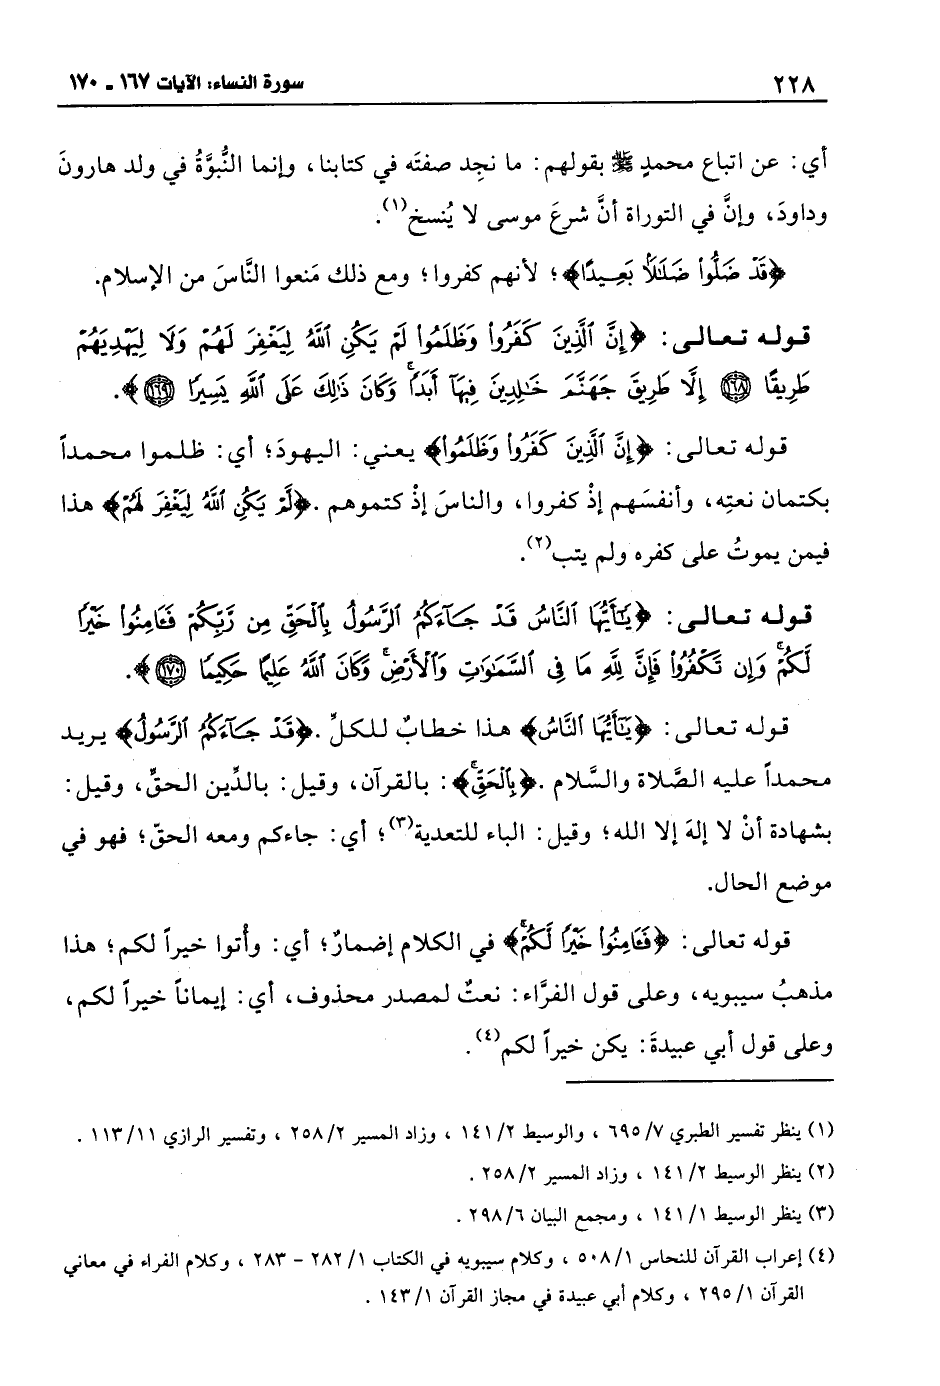 ٢٢٨ سورة النساء: الآيات ١٦٧ ـ ١٧٠
أي: عن اتباع محمدٍ ﷺ بقولهم: ما نجِد صفتَه في كتابنا، وإنما النُّبوَّةُ في ولد هارونَ
وداودَ، وإنَّ في التوراة أنَّ شرعَ موسى لا يُنسخ(١).
﴿قَدْ ضَلُّوا۟ ضَلَٰلًۢا بَعِيدًا﴾؛ لأنهم كفروا؛ ومع ذلك مَنعوا النَّاسَ من الإسلام.
قوله تعالى: ﴿إِنَّ ٱلَّذِينَ كَفَرُوا۟ وَظَلَمُوا۟ لَمْ يَكُنِ ٱللَّهُ لِيَغْفِرَ لَهُمْ وَلَا لِيَهْدِيَهُمْ
طَرِيقًا ١٦٨ إِلَّا طَرِيقَ جَهَنَّمَ خَٰلِدِينَ فِيهَآ أَبَدًا ۚ وَكَانَ ذَٰلِكَ عَلَى ٱللَّهِ يَسِيرًا ١٦٩﴾.
قوله تعالى: ﴿إِنَّ ٱلَّذِينَ كَفَرُوا۟ وَظَلَمُوا۟﴾ يعني: اليهودَ؛ أي: ظلموا محمداً
بكتمان نعتِه، وأنفسَهم إذْ كفروا، والناسَ إذْ كتموهم .﴿لَمْ يَكُنِ ٱللَّهُ لِيَغْفِرَ لَهُمْ﴾ هذا
فيمن يموتُ على كفره ولم يتب(٢).
قوله تعالى: ﴿يَٰٓأَيُّهَا ٱلنَّاسُ قَدْ جَآءَكُمُ ٱلرَّسُولُ بِٱلْحَقِّ مِن رَّبِّكُمْ فَـَٔامِنُوا۟ خَيْرًا
لَّكُمْ ۚ وَإِن تَكْفُرُوا۟ فَإِنَّ لِلَّهِ مَا فِى ٱلسَّمَٰوَٰتِ وَٱلْأَرْضِ ۚ وَكَانَ ٱللَّهُ عَلِيمًا حَكِيمًا ١٧٠﴾.
قوله تعالى: ﴿يَٰٓأَيُّهَا ٱلنَّاسُ﴾ هذا خطابٌ للكلِّ .﴿قَدْ جَآءَكُمُ ٱلرَّسُولُ﴾ يريد
محمداً عليه الصَّلاة والسَّلام .﴿بِٱلْحَقِّ ۚ﴾: بالقرآن، وقيل: بالدِّين الحقِّ، وقيل:
بشهادة أنْ لا إلهَ إلا الله؛ وقيل: الباء للتعدية(٣)؛ أي: جاءكم ومعه الحقّ؛ فهو في
موضع الحال.
قوله تعالى: ﴿فَـَٔامِنُوا۟ خَيْرًا لَّكُمْ ۚ﴾ في الكلام إضمارٌ؛ أي: وأْتوا خيراً لكم؛ هذا
مذهبُ سيبويه، وعلى قول الفرَّاء: نعتٌ لمصدر محذوف، أي: إيماناً خيراً لكم،
وعلى قول أبي عبيدةَ: يكن خيراً لكم(٤).
(١) ينظر تفسير الطبري ٧/ ٦٩٥ ، والوسيط ٢/ ١٤١ ، وزاد المسير ٢/ ٢٥٨ ، وتفسير الرازي ١١/ ١١٣ .
(٢) ينظر الوسيط ٢/ ١٤١ ، وزاد المسير ٢/ ٢٥٨ .
(٣) ينظر الوسيط ١/ ١٤١ ، ومجمع البيان ٦/ ٢٩٨ .
(٤) إعراب القرآن للنحاس ١/ ٥٠٨ ، وكلام سيبويه في الكتاب ١/ ٢٨٢ - ٢٨٣ ، وكلام الفراء في معاني
القرآن ١/ ٢٩٥ ، وكلام أبي عبيدة في مجاز القرآن ١/ ١٤٣ .